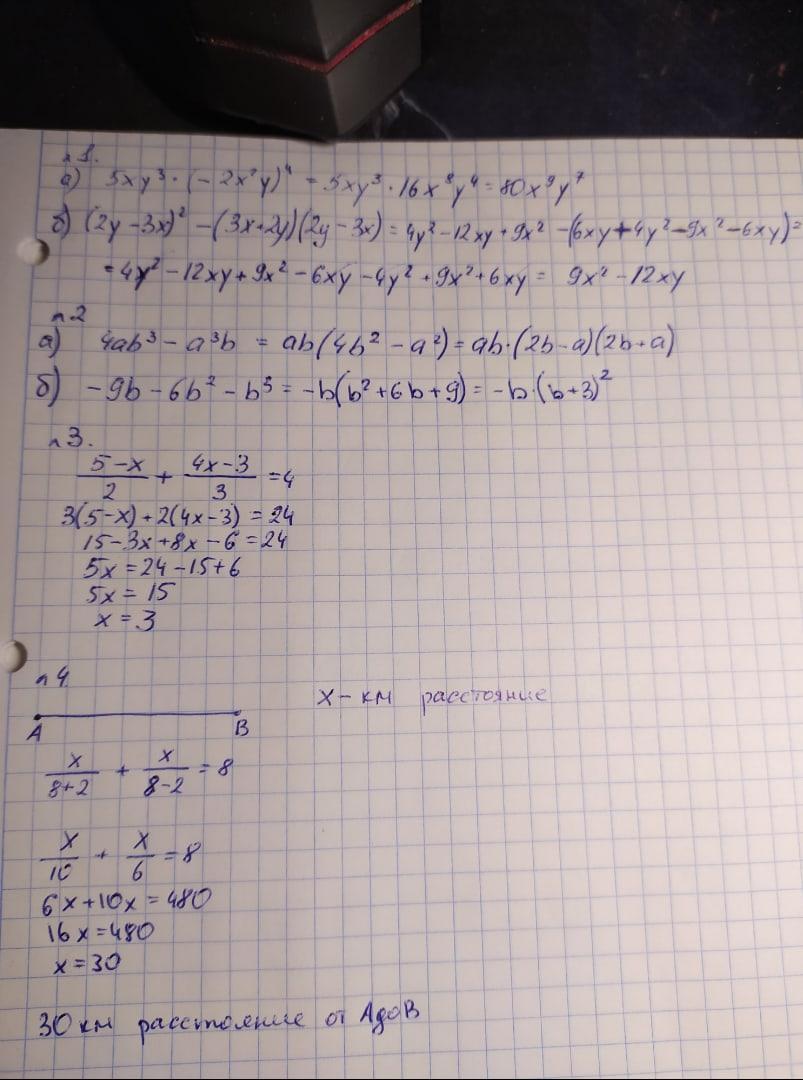 n 1.
а) 5xy³ · (-2x²y)⁴ = 5xy³ · 16x⁸y⁴ = 80x⁹y⁷
б) (2y - 3x)² - (3x + 2y)(2y - 3x) = 4y² - 12xy + 9x² - (6xy + 4y² - 9x² - 6xy) =
= 4y² - 12xy + 9x² - 6xy - 4y² + 9x² + 6xy = 9x² - 12xy
n 2
а) 4ab³ - a³b = ab(4b² - a²) = ab·(2b - a)(2b + a)
б) -9b - 6b² - b³ = -b(b² + 6b + 9) = -b·(b + 3)²
n 3.
(5-x)/2 + (4x-3)/3 = 4
3(5-x) + 2(4x-3) = 24
15 - 3x + 8x - 6 = 24
5x = 24 - 15 + 6
5x = 15
x = 3
n 4
x - км расстояние
A B
x/(8+2) + x/(8-2) = 8
x/10 + x/6 = 8
6x + 10x = 480
16x = 480
x = 30
30 км расстояние от А до В